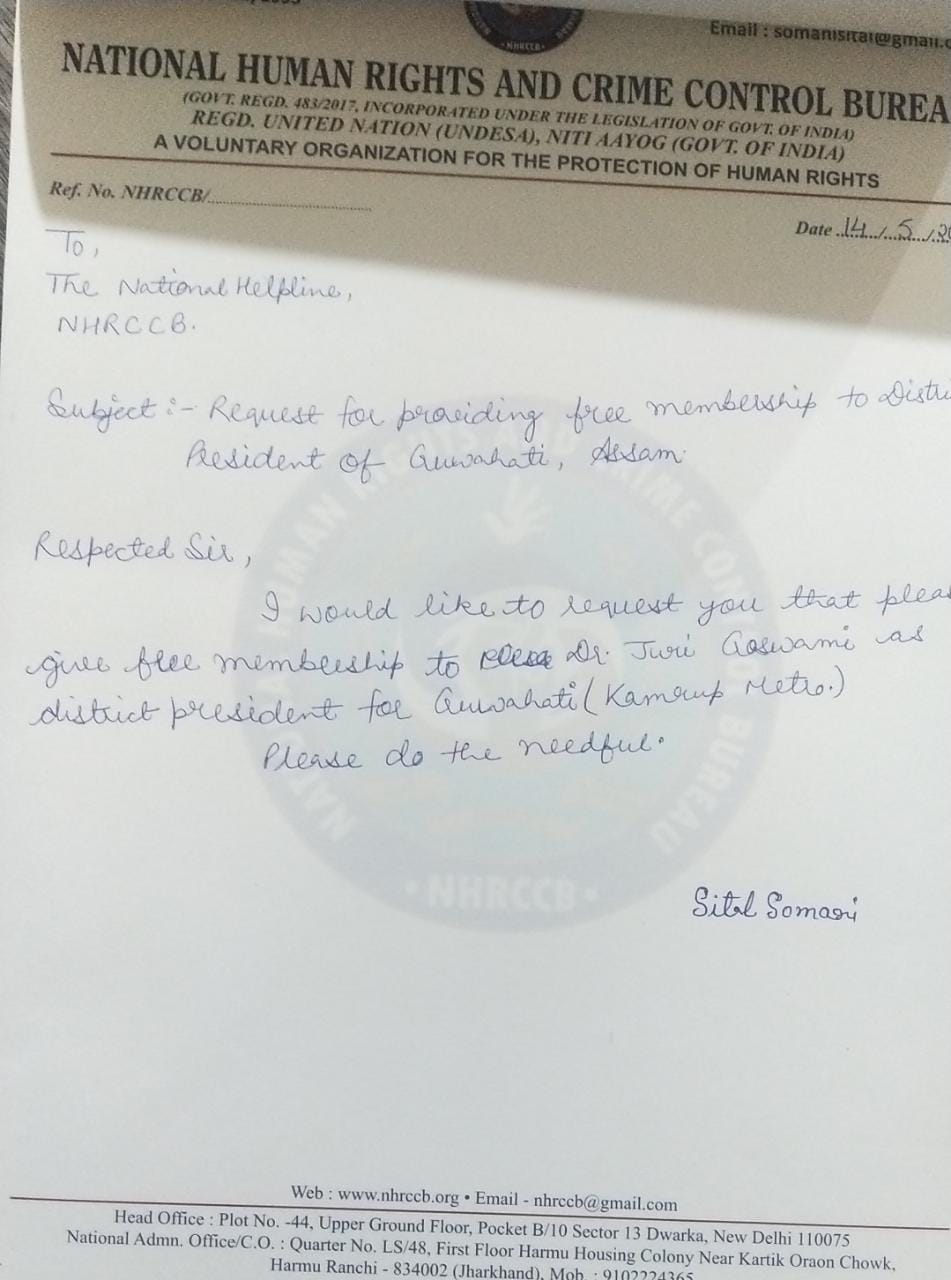 Email : somanisital@gmail.c
NHRCCB
NATIONAL HUMAN RIGHTS AND CRIME CONTROL BUREA
(GOVT. REGD. 483/2017, INCORPORATED UNDER THE LEGISLATION OF GOVT. OF INDIA)
REGD. UNITED NATION (UNDESA), NITI AAYOG (GOVT. OF INDIA)
A VOLUNTARY ORGANIZATION FOR THE PROTECTION OF HUMAN RIGHTS
Ref. No. NHRCCB/
Date 14/5/20
To,
The National Helpline,
NHRCCB.
Subject :- Request for providing free membership to Distri
President of Guwahati, Assam.
Respected Sir,
I would like to request you that pleas
give free membership to Dr. Juri Goswami as
district president for Guwahati (Kamrup Metro.)
Please do the needful.
NATIONAL HUMAN RIGHTS AND CRIME CONTROL BUREAU
• NHRCCB •
Sital Somani
Web : www.nhrccb.org • Email - nhrccb@gmail.com
Head Office : Plot No. -44, Upper Ground Floor, Pocket B/10 Sector 13 Dwarka, New Delhi 110075
National Admn. Office/C.O. : Quarter No. LS/48, First Floor Harmu Housing Colony Near Kartik Oraon Chowk,
Harmu Ranchi - 834002 (Jharkhand), Mob. : 9102224365